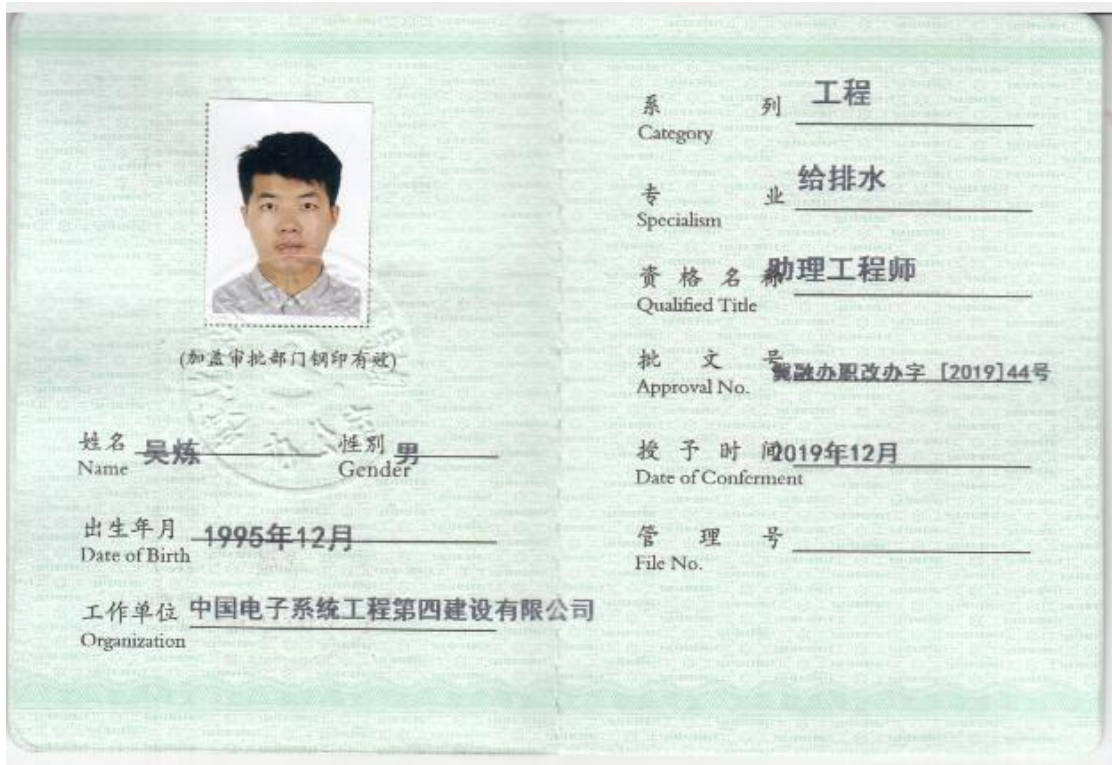 (加盖审批部门钢印有效)
姓名 吴炼 性别 男
Name Gender
出生年月 1995年12月
Date of Birth
工作单位 中国电子系统工程第四建设有限公司
Organization
系列 工程
Category
专业 给排水
Specialism
资格名称 助理工程师
Qualified Title
批文号 冀融办职改办字 [2019]44号
Approval No.
授予时间 2019年12月
Date of Conferment
管理号
File No.